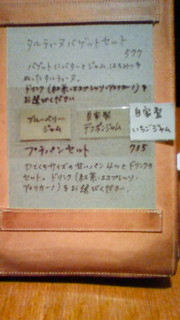 タルティーヌバゲットセット
577
バゲットにバターとジャム、はちみつを
ぬったタルティーヌ。
ドリンク(紅茶・エスプレッソ・アメリカーノ)を
お選びください
ブルーベリー
ジャム
自家製
デコポンジャム
自家製
いちごジャム
プチパンセット 735
ひとくちサイズの甘いパン4つとドリンクの
セット。ドリンク(紅茶・エスプレッソ・
アメリカーノ)をお選びください。